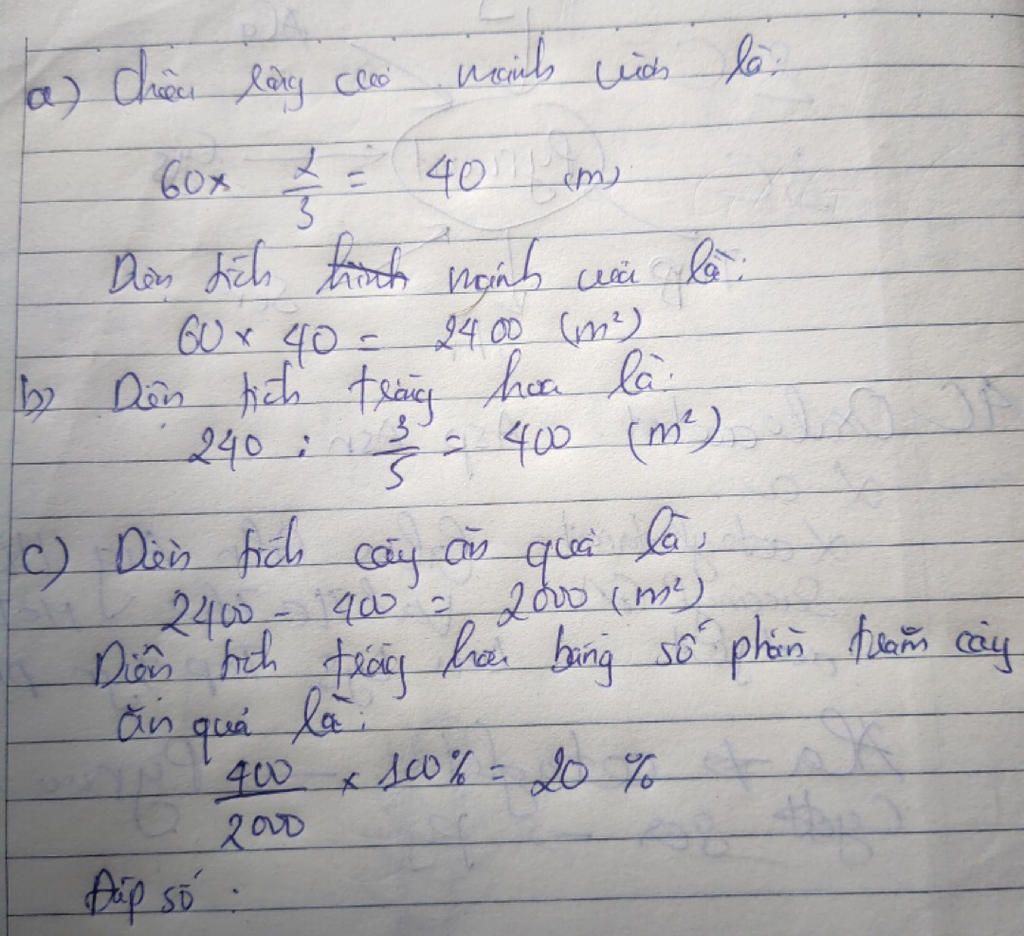 a) Chiều rộng của mảnh vườn là:
60 x 2/3 = 40 (m)
Diện tích hình mảnh vườn là:
60 x 40 = 2400 (m²)
b) Diện tích trồng hoa là:
240 : 3/5 = 400 (m²)
c) Diện tích cây ăn quả là:
2400 - 400 = 2000 (m²)
Diện tích trồng hoa bằng số phần trăm cây
ăn quả là:
400/2000 x 100% = 20 %
Đáp số :